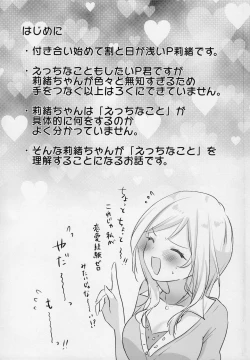 はじめに
・付き合い始めて割と日が浅いP莉緒です。
・えっちなこともしたいP君ですが
莉緒ちゃんが色々と無知すぎるため
手をつなぐ以上はろくにできていません。
・莉緒ちゃんは「えっちなこと」が
具体的に何をするのか
よく分かっていません。
・そんな莉緒ちゃんが「えっちなこと」を
理解することになるお話です。
ちょ、ちょっと
これじゃ私が
恋愛経験ゼロ
みたいじゃない!
やだ…